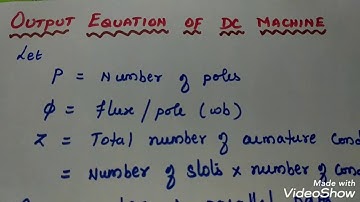 OUTPUT EQUATION OF DC MACHINE
Let
P = Number of poles
φ = flux/pole (wb)
Z = Total number of armature Cond
= Number of slots × number of cond
Made with
VideoShow